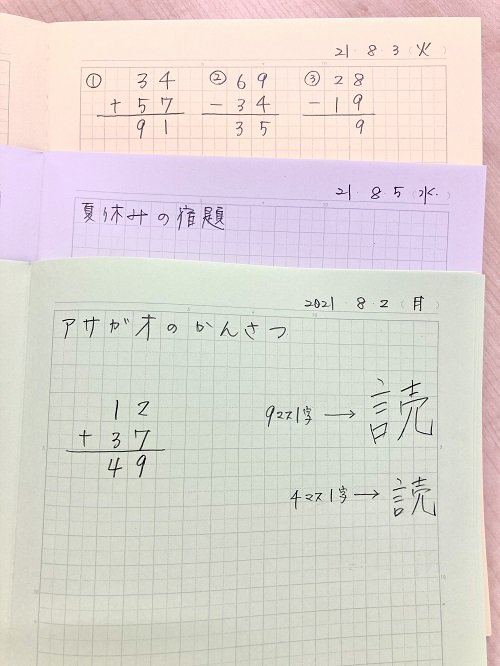 21・8・3(火)
① 34 ② 69 ③ 28
+57 -34 -19
91 35 9
21・8・5(水)
夏休みの宿題
2021・8・2(月)
アサガオのかんさつ
12
+37
49
9マス1字→読
4マス1字→読